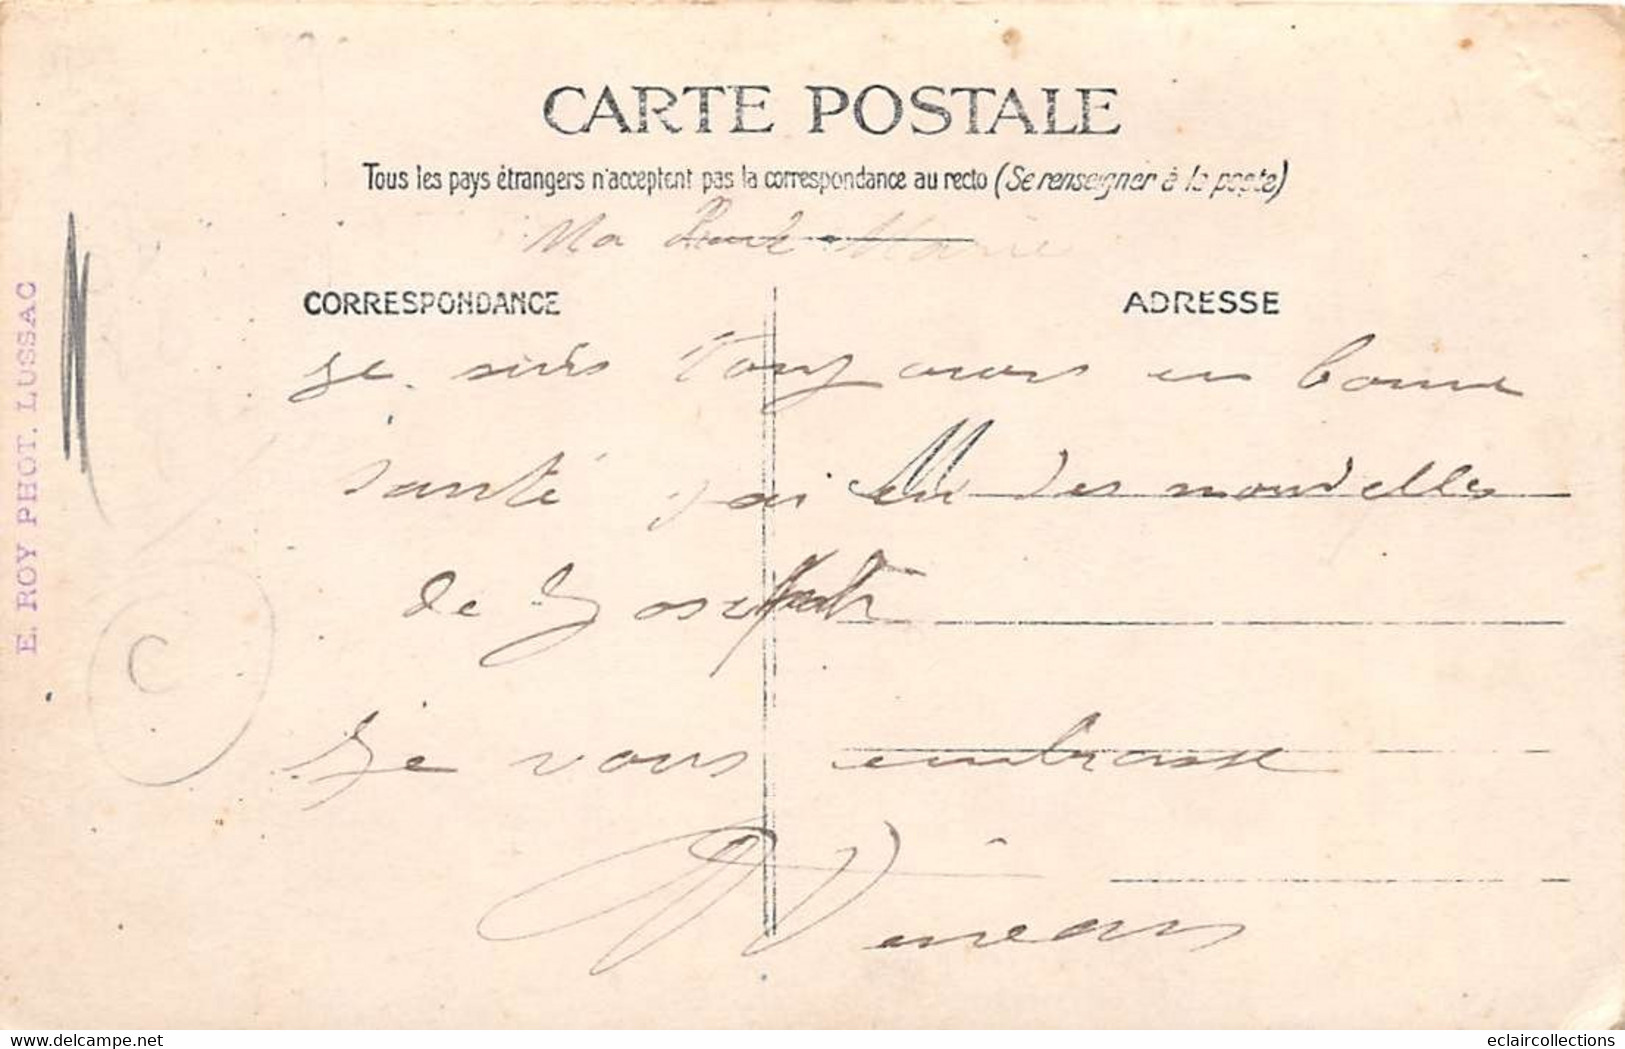 CARTE POSTALE
Tous les pays étrangers n'acceptent pas la correspondance au recto (Se renseigner à la poste)
Ma Marie
CORRESPONDANCE ADRESSE
je suis toujours en bonne
santé j'ai eu des nouvelles
de Joseph
Je vous embrasse
E. ROY PHOT. LUSSAC
C
https://www.delcampe.net
eclaircollections